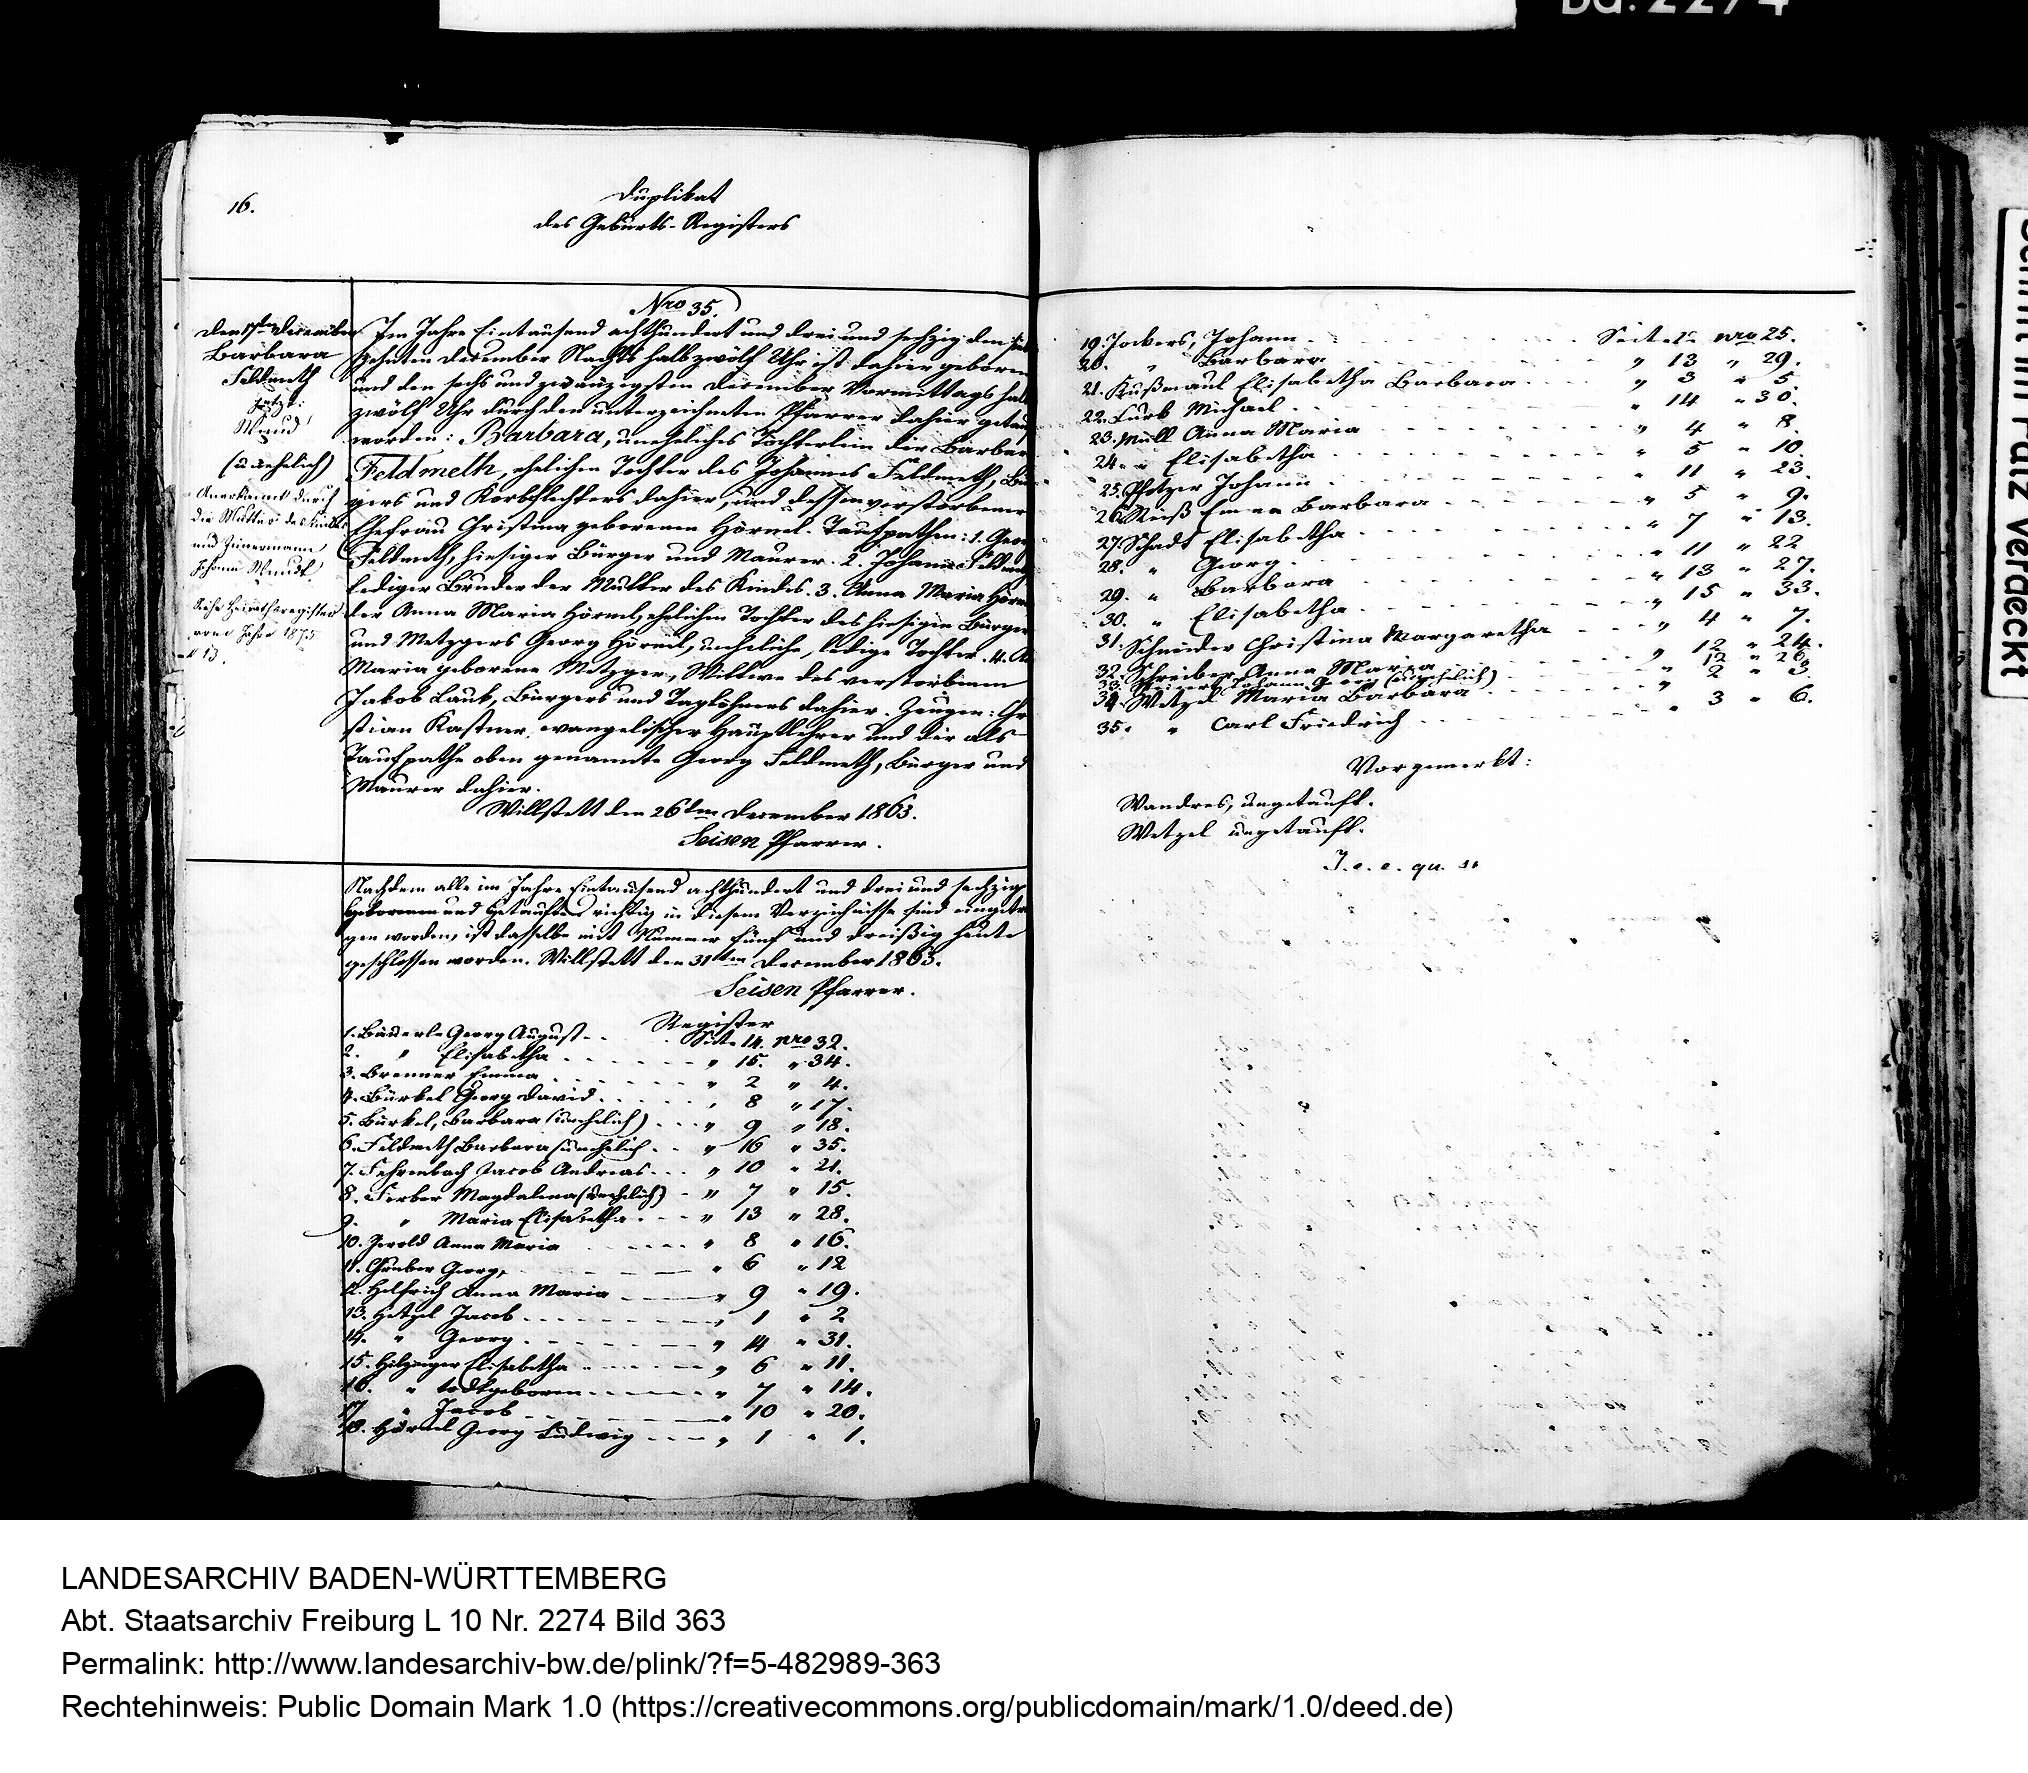 Bd. 2274
Schrift mit Falz verdeckt
16.
Duplikat
des Geburts-Registers
Nro 35.
Den 17ten December
Barbara
Feldmeth
jetzt:
(unehelich)
Anerkannt durch
die Mutter des Kindes
und Zimermann
Johann
Siehe Heirathsregister
vom Jahre 1875
№ 13.
Im Jahre Eintausend achthundert und drei und sechzig den sieb
zehnten December Nachts halb zwölf Uhr ist dahier geboren
und den sechs und zwanzigsten December Vormittags halb
zwölf Uhr durch den unterzeichneten Pfarrer dahier getauft
worden: Barbara, uneheliches Töchterlein der Barbara
Feldmeth, ehelichen Tochter des Johannes Feldmeth, Bür
gers und Korbflechters dahier, und dessen verstorbener
Ehefrau Christina geborenen Hörnel. Taufpathen: 1. Georg
Feldmeth, hiesiger Bürger und Maurer. 2. Johann Feldmeth
lediger Bruder der Mutter des Kindes. 3. Anna Maria Hörnel
der Anna Maria Hörnel, ehelichen Tochter des hiesigen Bürgers
und Metzgers Georg Hörnel, uneheliche, ledige Tochter. 4. A
Maria geborene Metzger, Wittwe des verstorbenen
Jakob Laub, Bürgers und Taglöhners dahier. Zeugen: Chr
stian Kastner, evangelischer Hauptlehrer und der als
Taufpathe oben genannte Georg Feldmeth, Bürger und
Maurer dahier.
Willstett den 26ten December 1863.
Seisen Pfarrer.
Nachdem alle im Jahre Eintausend achthundert und drei und sechzig
Geborenen und Getauften richtig in diesem Verzeichnisse sind eingetra
gen worden, ist dasselbe mit Nummer fünf und dreißig heute
geschlossen worden. Willstett den 31ten December 1863.
Seisen Pfarrer.
Register
1. Bäuerle Georg August - - Seite 14. nro 32.
2. " Elisabetha " 15. " 34.
3. Brenner Emma " 2 " 4.
4. Bürkel Georg David " 8 " 17.
5. Bürkel, Barbara (unehelich) " 9 " 18.
6. Feldmeth Barbara (unehelich " 16 " 35.
7. Fehrenbach Jacob Andreas " 10 " 21.
8. Ferber Magdalena (unehelich) " 7 " 15.
9. " Maria Elisabetha " 13 " 28.
10. Anna Maria " 8 " 16.
11. Georg " 6 " 12
12. Helfrich Anna Maria " 9 " 19.
13. Hetzel Jacob " 1 " 2
14. " Georg " 14 " 31.
15. Hilzinger Elisabetha " 6 " 11.
16. " todtgeboren " 7 " 14.
17. " Jacob " 10 " 20.
18. Hörnel Georg Ludwig " 1 " 1.
19. Jockers, Johann Seite 12 nro 25.
20. " Barbara " 13 " 29.
21. Kußmaul Elisabetha Barbara " 3 " 5.
22. Michael " 14 " 30.
23. Müll Anna Maria " 4 " 8.
24. " Elisabetha " 5 " 10.
25. Pfotzer Johann " 11 " 23.
26. Reiß Emma Barbara " 5 " 9.
27. Schadt Elisabetha " 7 " 13.
28. " Georg " 11 " 22
29. " Barbara " 13 " 27.
30. " Elisabetha " 15 " 33.
31. Schneider Christina Margaretha " 4 " 7.
32. Schreiber Anna Maria " 12 " 24.
33. Johann Georg (unehelich) " 12 " 26
34. Wetzel Maria Barbara " 2 " 3.
35. " Carl Friedrich " 3 " 6.
Vorgemerkt:
Wandres, ungetauft.
Wetzel ungetauft.
LANDESARCHIV BADEN-WÜRTTEMBERG
Abt. Staatsarchiv Freiburg L 10 Nr. 2274 Bild 363
Permalink: http://www.landesarchiv-bw.de/plink/?f=5-482989-363
Rechtehinweis: Public Domain Mark 1.0 (https://creativecommons.org/publicdomain/mark/1.0/deed.de)